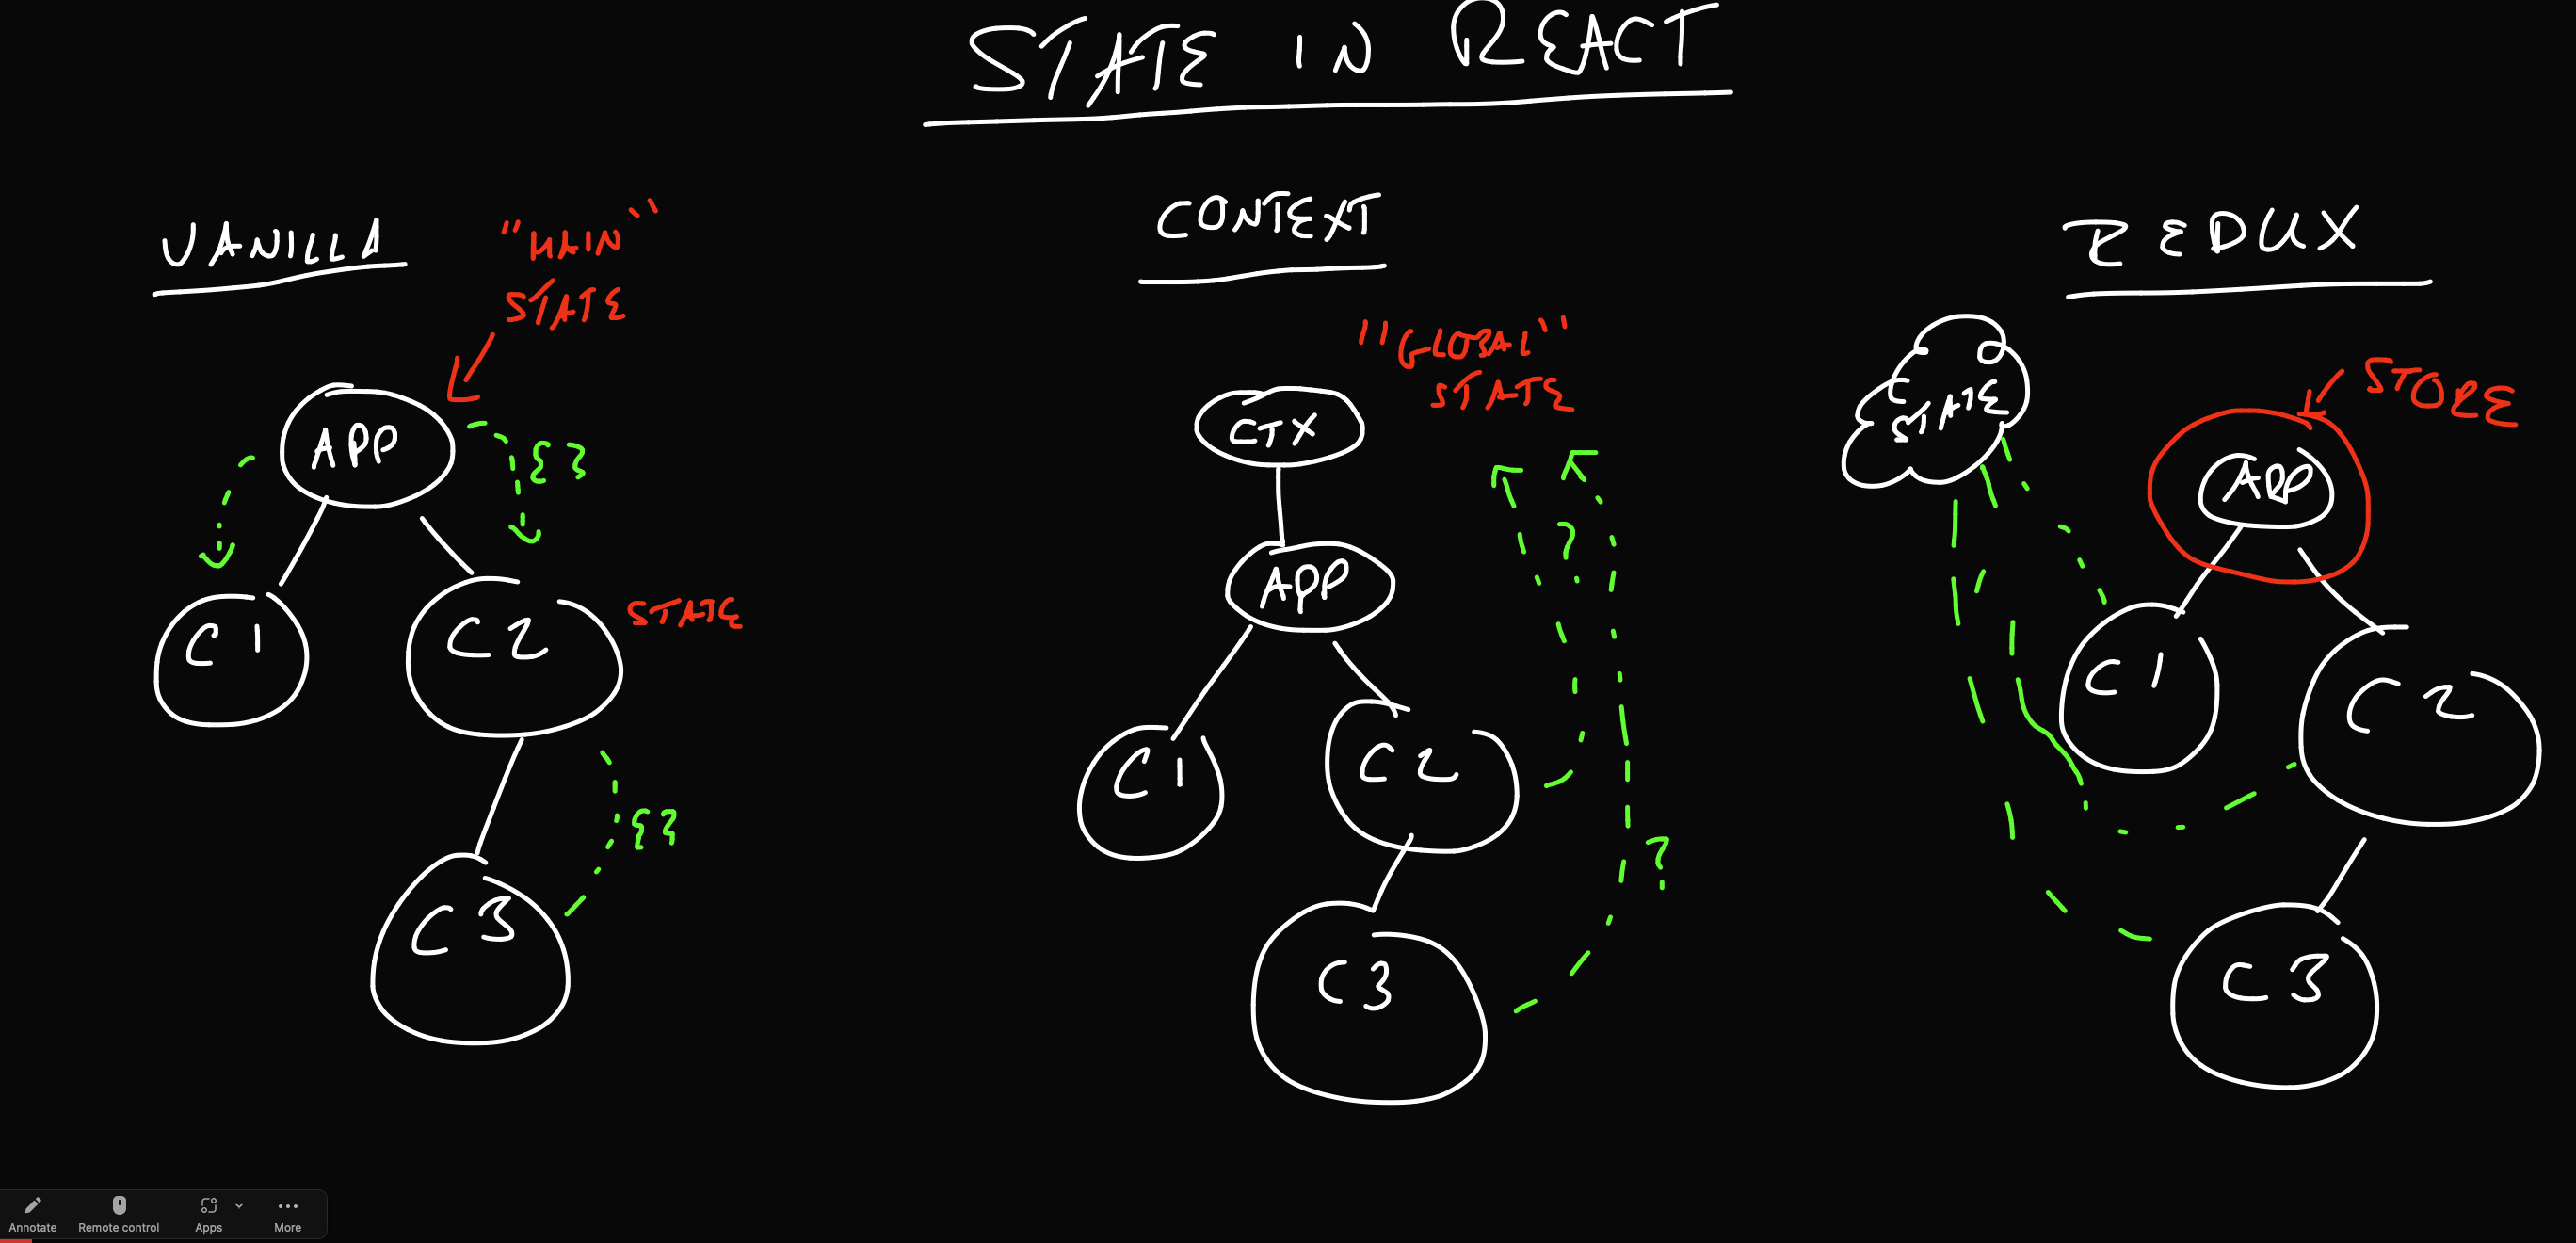 STATE IN REACT
VANILLA
"MAIN"
STATE
APP
{ }
C1
C2
STATE
{ }
C3
CONTEXT
"GLOBAL"
STATE
CTX
?
APP
C1
C2
?
C3
REDUX
STATE
STORE
APP
C1
C2
C3
Annotate
Remote control
Apps
More